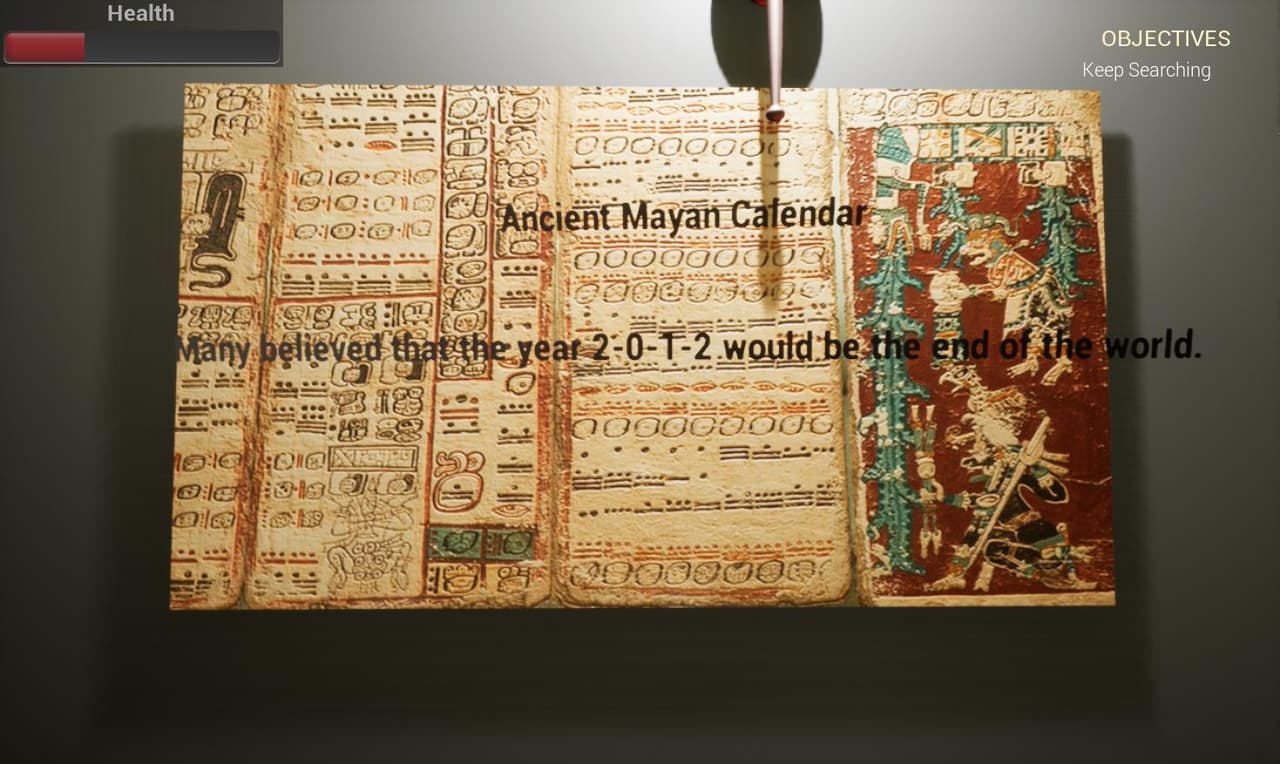 Health
OBJECTIVES
Keep Searching
Ancient Mayan Calendar
Many believed that the year 2-0-T-2 would be the end of the world.